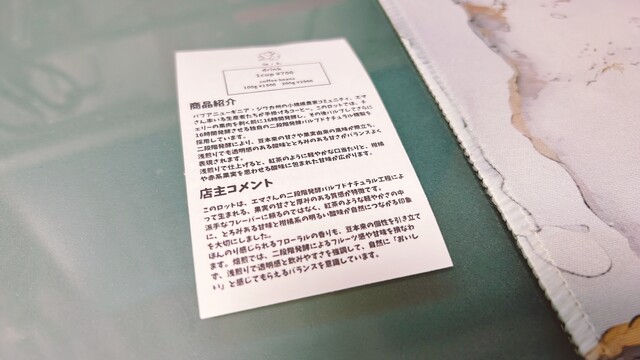 drink
1cup ¥700
coffee beans
商品紹介
パプアニューギニア・ジワカ州の小規模農家コミュニティ、エマ
さん率いる生産者たちが手掛けるコーヒー。このロットでは、チ
ェリーの果肉を剥く前に16時間発酵し、その後パルプしてさらに
16時間発酵させる独自の二段階発酵パルプドナチュラル精製を
採用しています。
二段階発酵により、豆本来の甘さや果実由来の風味が際立ち、
浅煎りでも透明感のある酸味ととろみのある甘さがバランスよく
表現されます。
浅煎りで仕上げると、紅茶のように軽やかな口当たりと、柑橘
や赤系果実を思わせる酸味に包まれた甘味が広がります。
店主コメント
このロットは、エマさんの二段階発酵パルプドナチュラル工程によ
って生まれる、果実の甘さと厚みのある質感が特徴です。
派手なフレーバーに頼るのではなく、紅茶のような軽やかさの中
に、とろみある甘味と柑橘系の明るい酸味が自然につながる印象
を大切にしました。
ほんのり感じられるフローラルの香りも、豆本来の個性を引き立て
ます。焙煎では、二段階発酵によるフルーツ感や甘味を損なわ
ず、浅煎りで透明感と飲みやすさを強調して、自然に「おいし
い」と感じてもらえるバランスを意識しています。